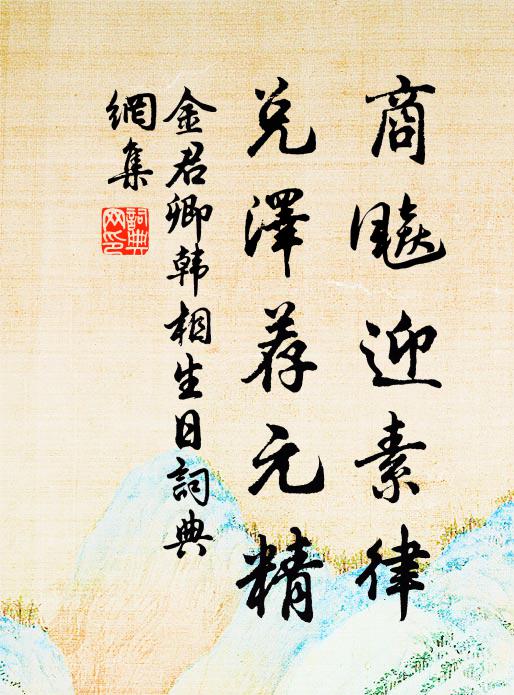 商飈迎素律
兌澤荐元精
金君卿韩相生日詞典
網集
詞典
网印